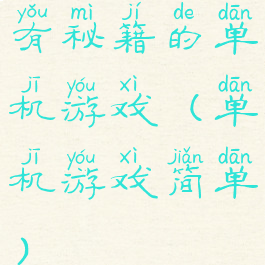 yǒu mì jí de dān
有秘籍的单
jī yóu xì dān
机游戏(单
jī yóu xì jiǎn dān
机游戏简单
)